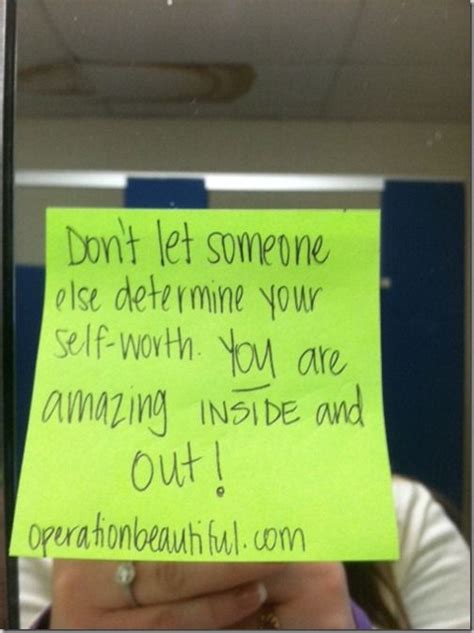 Don't let someone
else determine your
self-worth. YOU are
amazing INSIDE and
OUT!
operationbeautiful.com